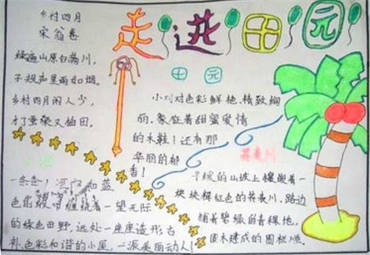 走进田园
乡村四月
宋翁卷
绿遍山原白满川，
子规声里雨如烟。
乡村四月闲人少，
才了蚕桑又插田。
田园
小刘对色彩鲜艳，精致绚
丽，象征着甜蜜爱情
的木鞋！还有那
华丽的郁
香！
一条条
蓝
色
缠绕着一望无际
的绿色田野，远处一座座造形古
朴，色彩和谐的小屋，一派美丽动人！
荞麦川
平缓的山坡上镶嵌着一
块块绯红色的荞麦川，路边
铺着碧绿的青稞地，
圆木建成的围栏